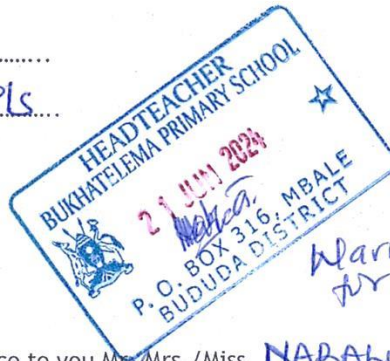 ..........
Pls
HEADTEACHER
BUKHATELEMA PRIMARY SCHOOL
21 JUN 2024
P. O. BOX 316, MBALE
BUDUDA DISTRICT
for
ce to you Mr./Mrs./Miss